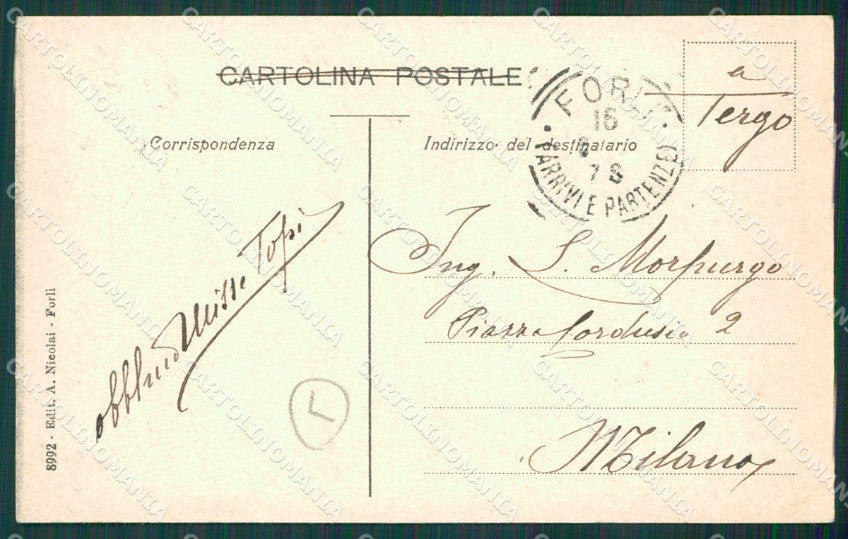 CARTOLINA POSTALE
Corrispondenza
Indirizzo del destinatario
a
Tergo
FORLÌ
16
7 8
(ARRIVI E PARTENZE)
Ing. S. Morpurgo
Piazza Cordusio 2
Milano
8992 - Edit. A. Nicolai - Forlì
L
CARTOLINOMANIA